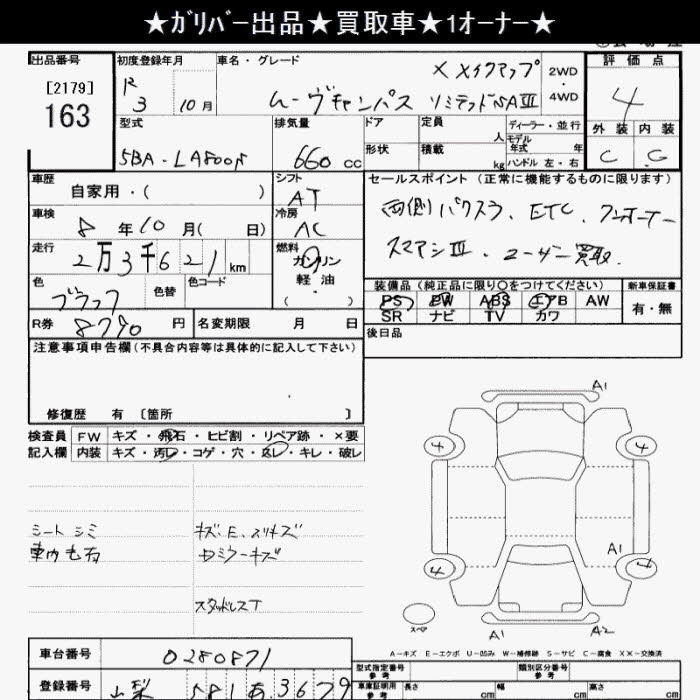 ★ｶﾞﾘﾊﾞｰ出品★買取車★1オーナー★
出品番号 初度登録年月 車名・グレード 評価点
[2179] 163
R 3 10月
× メイクアップ
ムーヴキャンバス リミテッドSAⅢ
2WD・4WD
4
外装 内装
C C
型式 排気量 ドア 定員 人 ディーラー・並行
5BA-LA800S 660 cc
形状 積載 kg モデル年式 年 ハンドル 左・右
車歴 シフト セールスポイント (正常に機能するものに限ります)
自家用・( ) AT
両側パワスラ、ETC、ワンオーナー
車検 冷房
8 年 10 月( 日) AC
スマアシⅢ・ユーザー買取.
走行 燃料
2万3千621 km ガソリン 軽油 ・( )
色 色替 色コード
ブラック
装備品 (純正品に限り○をつけてください) 新車保証書
PS PW ABS エアB AW 有・無
SR ナビ TV カワ
R券 8790 円 名変期限 月 日
後日品
注意事項申告欄(不具合内容等は具体的に記入して下さい)
修復歴 有 〔箇所 〕
検査員 FW キズ・飛石・ヒビ割・リペア跡・×要
記入欄 内装 キズ・汚レ・コゲ・穴・スレ・キレ・破レ
シートシミ キズ、E、スリキズ
車内毛有 Rミラーキズ
スタッドレスT
A1
4 4
A1
4 4
A1 A2
スペア
A-キズ E-エクボ U-凹み W-補修跡 S-サビ C-腐食 XX-交換済
車台番号 0280871
登録番号 山梨 581 あ 3679
型式指定番号 参考 類別区分番号 参考
車庫証明用 参考 長さ cm 幅 cm 高さ cm